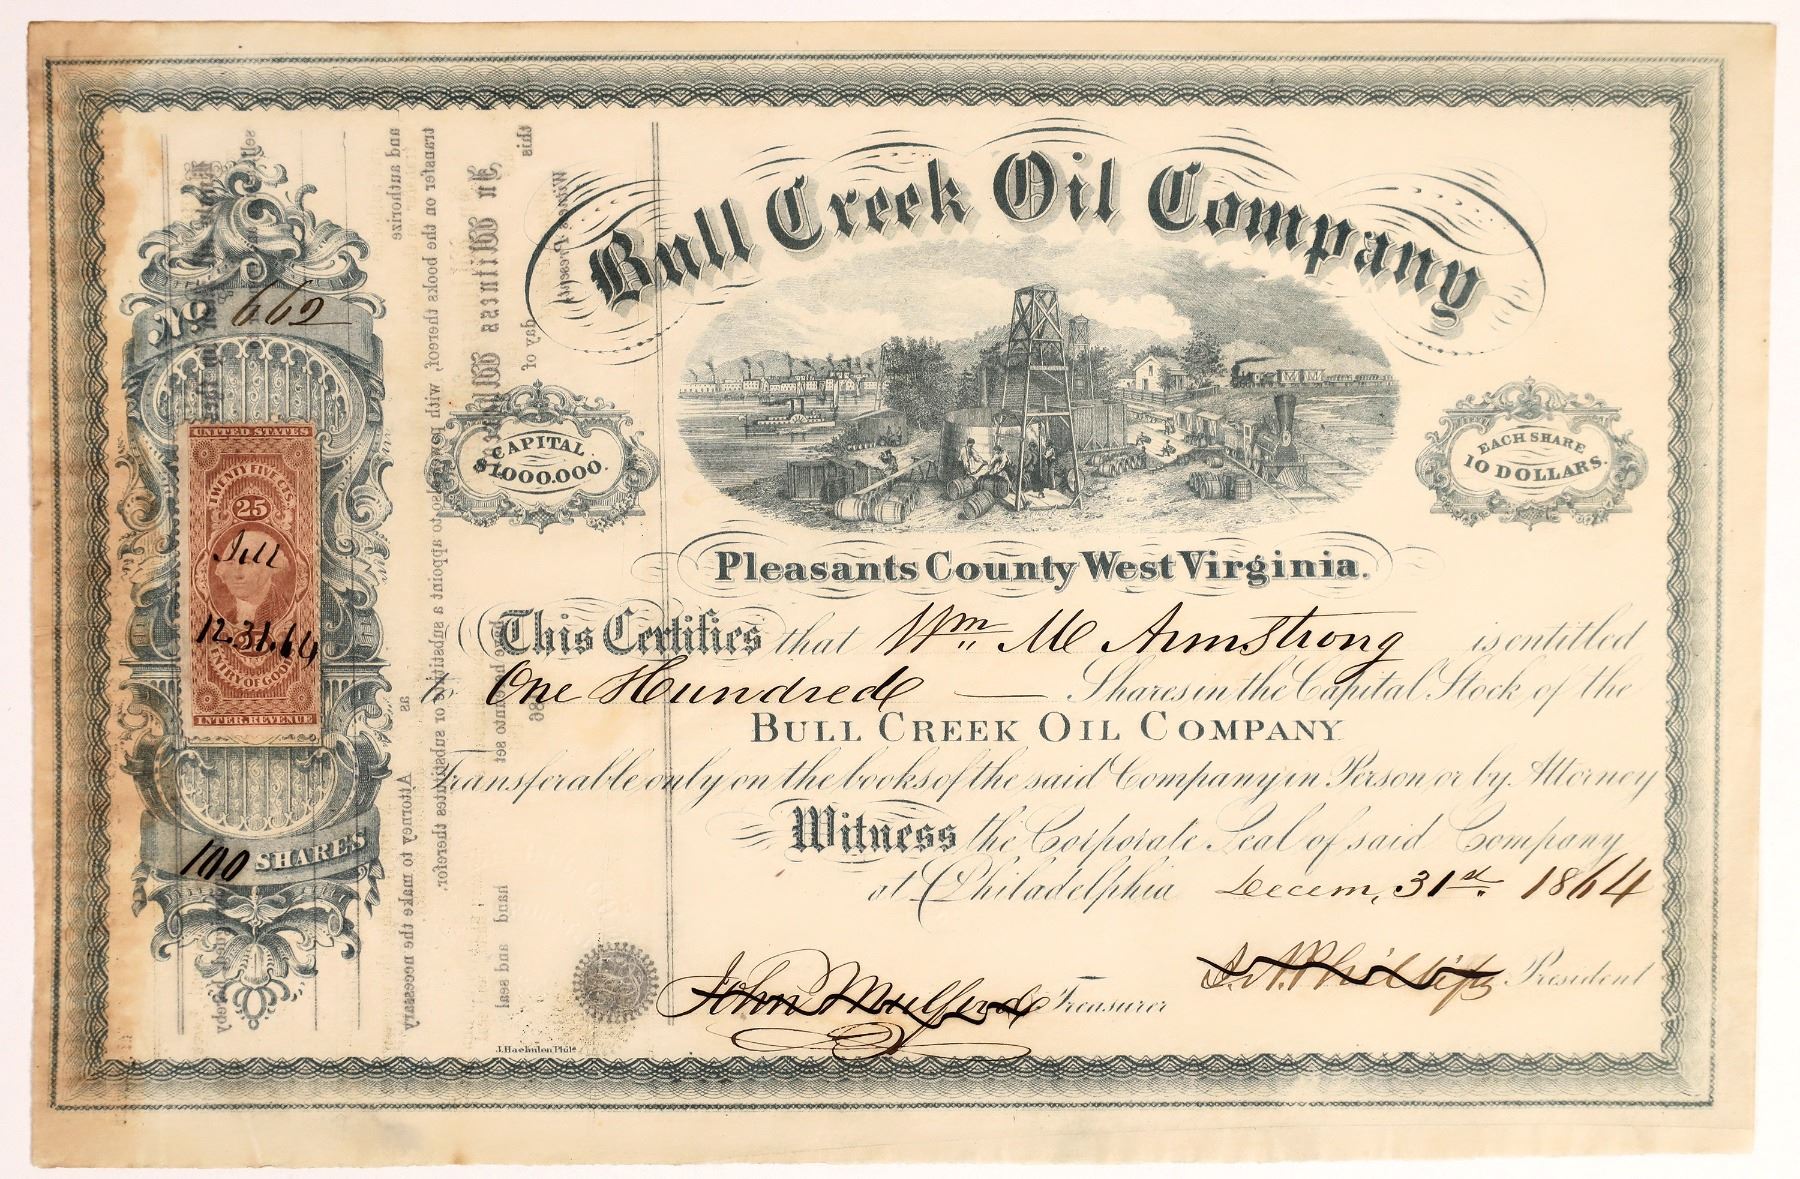 Bull Creek Oil Company
No 662
CAPITAL
$1.000.000.
EACH SHARE
10 DOLLARS.
Pleasants County West Virginia.
This Certifies that Wm M Armstrong is entitled
to One Hundred — Shares in the Capital Stock of the
BULL CREEK OIL COMPANY
Transferable only on the books of the said Company in Person or by Attorney
Witness the Corporate Seal of said Company
at Philadelphia Decem, 31st 1864
John Mulford Treasurer
Phillips President
100 SHARES
UNITED STATES
TWENTY FIVE CTS.
25
12.31.64
ENTRY OF GOODS
INTER. REVENUE
J. Haehnlen Phila
this
day of
Witness Present
In Witness Whereof
have hereunto set
hand and seal
186
transfer on the books thereof, with power also to appoint a substitute or substitutes therefor.
and authorize
as
Attorney to make the necessary